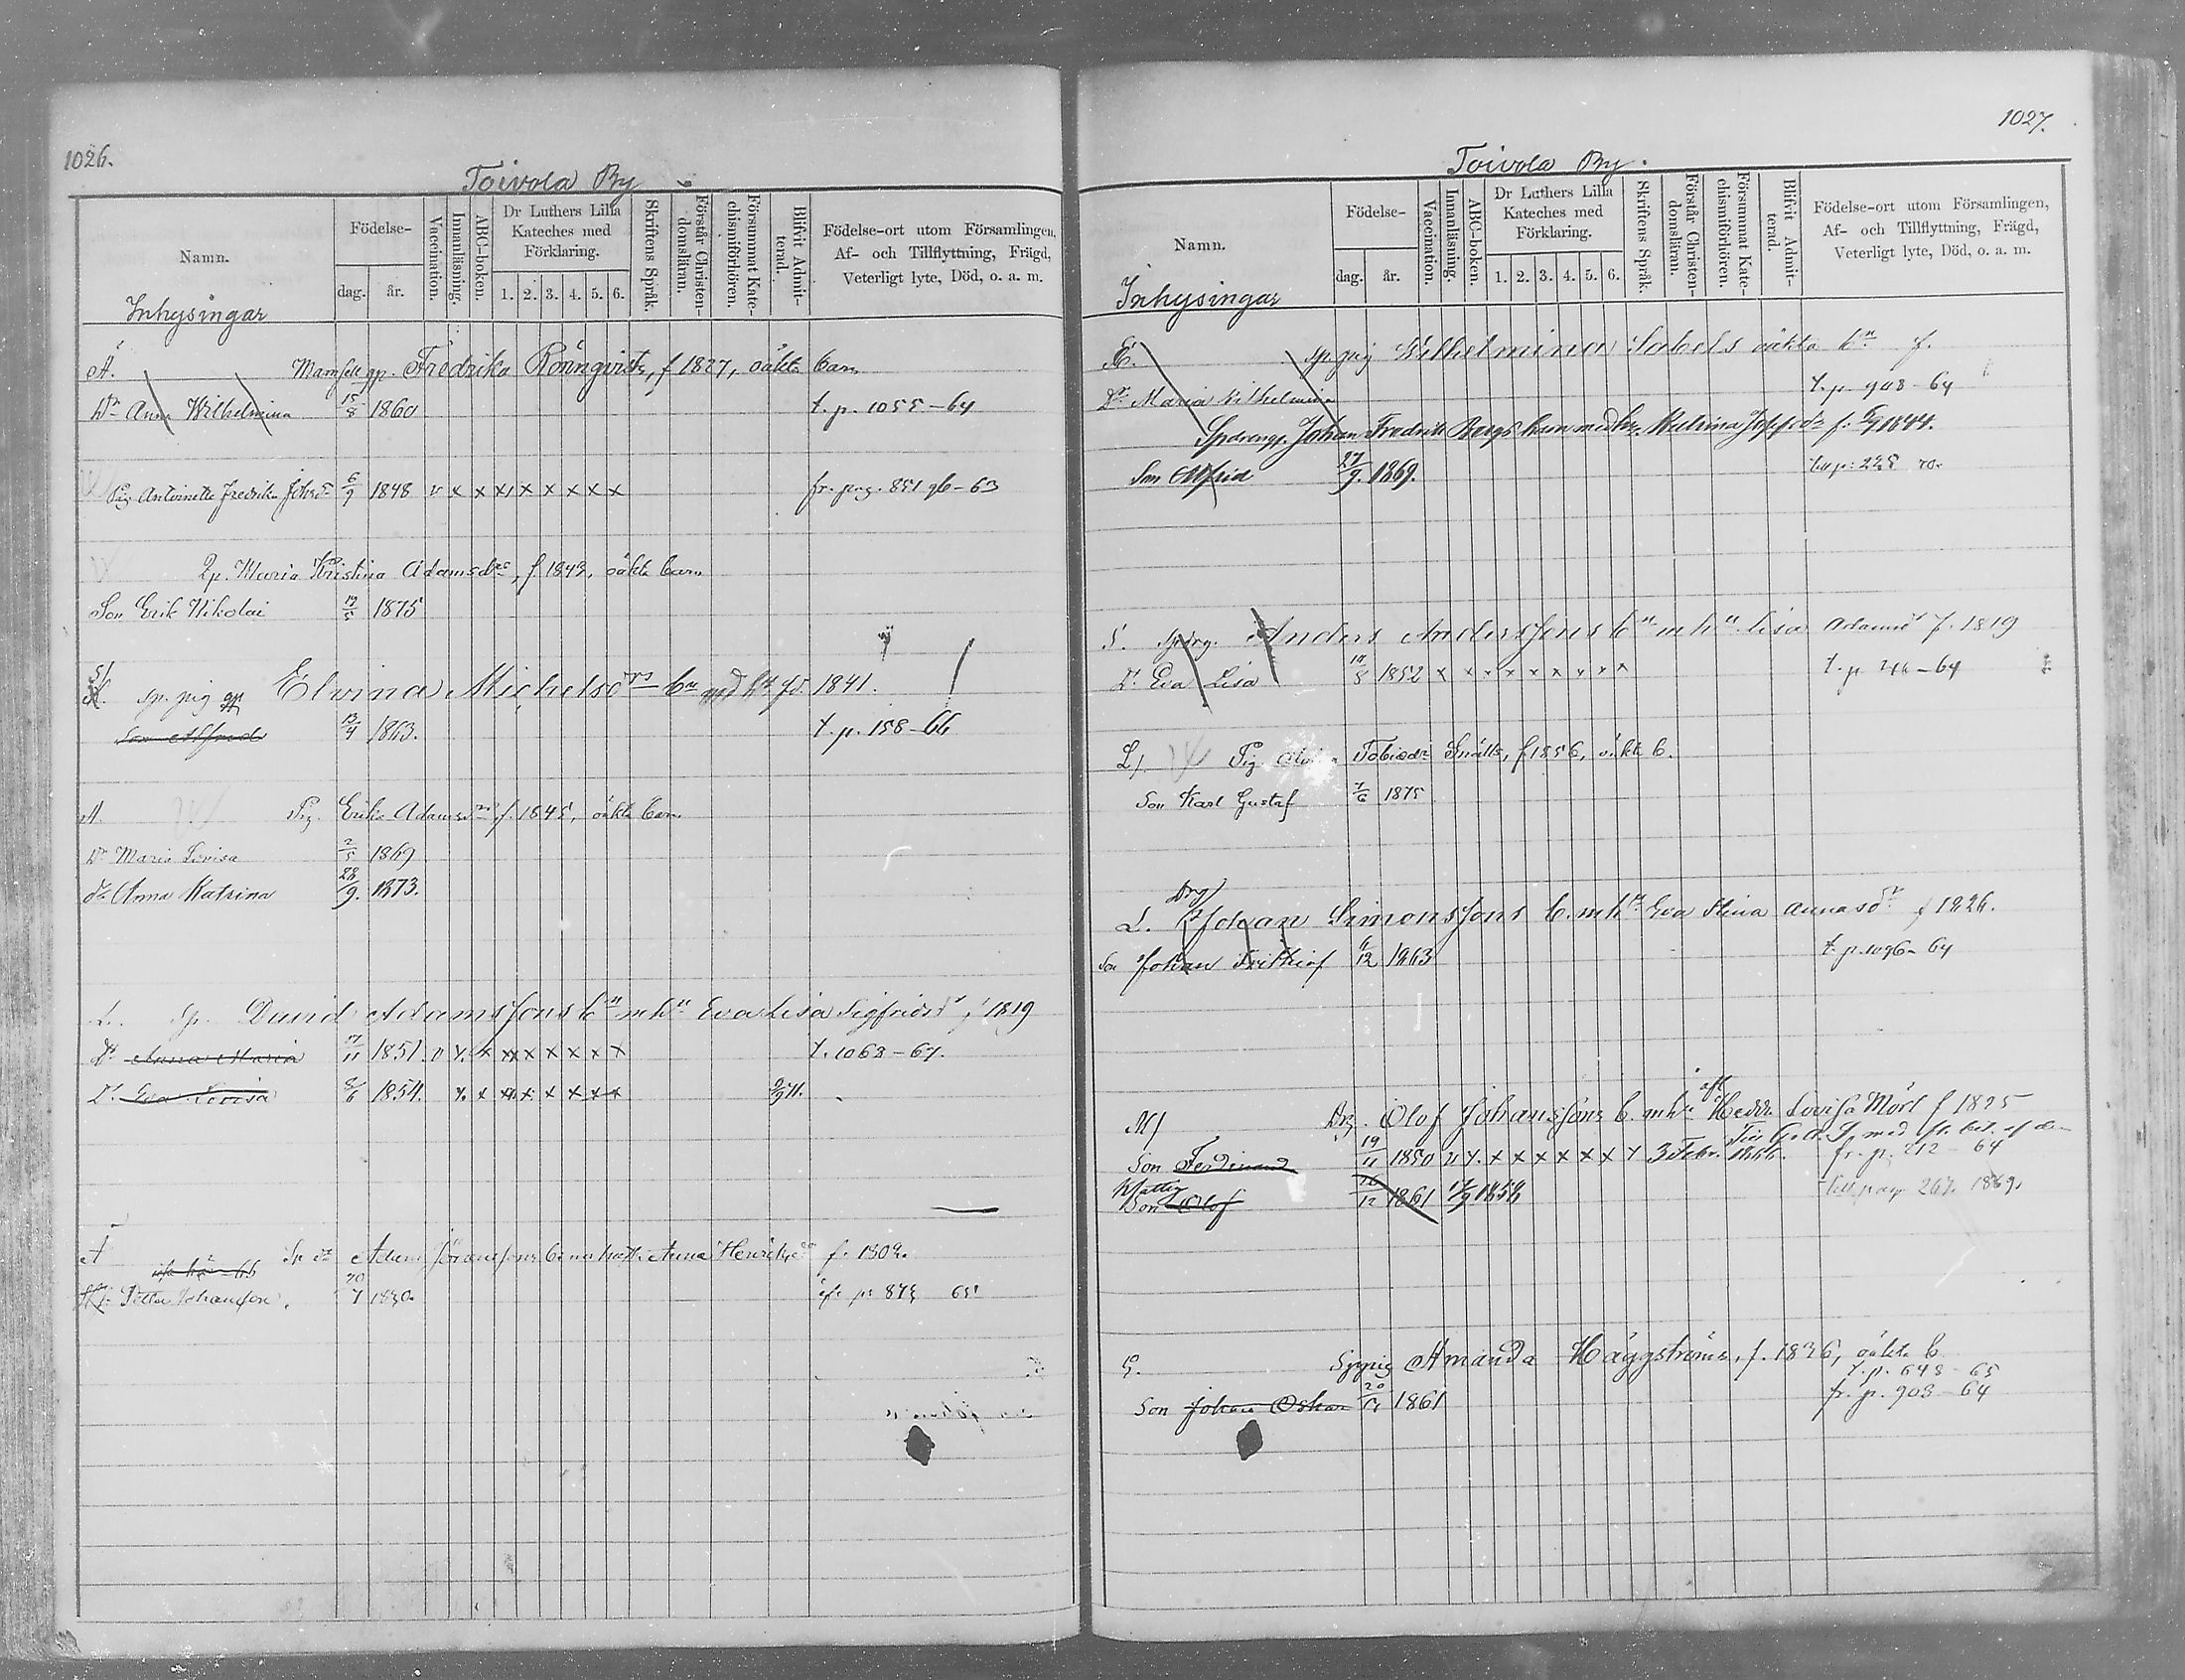 1026.
Toivola By
Namn.
Födelse-
dag.
år.
Vaccination.
Innanläsning.
ABC-boken.
Dr Luthers Lilla
Kateches med
Förklaring.
1. 2. 3. 4. 5. 6.
Skriftens Språk.
Förstår Christen-
domsläran.
Försummat Kate-
chismiförhören.
Blifvit Admit-
terad.
Födelse-ort utom Församlingen,
Af- och Tillflyttning, Frägd,
Veterligt lyte, Död, o. a. m.
Inhysingar
A. Mamsell Fredrika Rönnqvists, f 1827, oäkta barn
Dr Anna Wilhelmina 15/8 1860 t. p. 1055-64
Pig Antoinette Fredrika 6/9 1848 v x x x x x x x x fr. pag. 851 96-63
Maria Kristina Adamsdrs, f 1843, oäkta barn
Son Erik Nikolai 19/5 1875
sp. pig Elvina Michelsdrs 1841.
Son Alfred 13/4 1863. t. p. 158-66
A. Pig. Adamsdrs f. 1845, oäkta barn
Dr Maria Lovisa 2/5 1869
dr Anna Katrina 28/9. 1873.
L. Sp. David Adamssons bn m hn Eva Lisa Sigfridsdr f 1819
Dr Anna Maria 1851. v x x x x x x x x t. 1063-67.
Dr Eva Lovisa 8/6 1854. x x x x x x x x 71.
A Adam bn med hatt. Anna Henriksdr f. 1802.
Petter Johansson. 1830. p. 873 65
1027.
Toivola By.
Namn.
Födelse-
dag.
år.
Vaccination.
Innanläsning.
ABC-boken.
Dr Luthers Lilla
Kateches med
Förklaring.
1. 2. 3. 4. 5. 6.
Skriftens Språk.
Förstår Christen-
domsläran.
Försummat Kate-
chismiförhören.
Blifvit Admit-
terad.
Födelse-ort utom Församlingen,
Af- och Tillflyttning, Frägd,
Veterligt lyte, Död, o. a. m.
Inhysingar
sp. pig Wilhelmina Sabels oäkta bn f.
Dr Maria Wilhelmina t. p. 903-64
Johan Fredrik Bergs barn med Katrina f. 1844.
Son Alfrid 27/9. 1869. till p. 225 70.
S. Anders Anderssons bn m hn Lisa Adamsdr f. 1819
Dr Eva Lisa 1852 x x x x x x x x t. p. 46-64
L. Pig Tobiædr Snälls, f 1856, oäkta b.
Son Karl Gustaf 7/6 1875
Drg
L. Johan Simonssons b. m hn Eva Stina Annasdr f 1826.
Son Johan Frithiof 6/12 1863 t. p. 1096-64
M Drg. Olof Johanssons b. m hn aft Hedda Lovisa Mörl f 1825
Son Ferdinand 19/11 1850 v x x x x x x x x 3 Febr. 1866. fr. p. 212-64
Matteg
Son Olof 1861 till pag 267. 1869.
G. Sp pig Amanda Häggströms, f. 1836, oäkta b
t. p. 643-65
Son Johan Oskar 1861 fr. p. 903-64